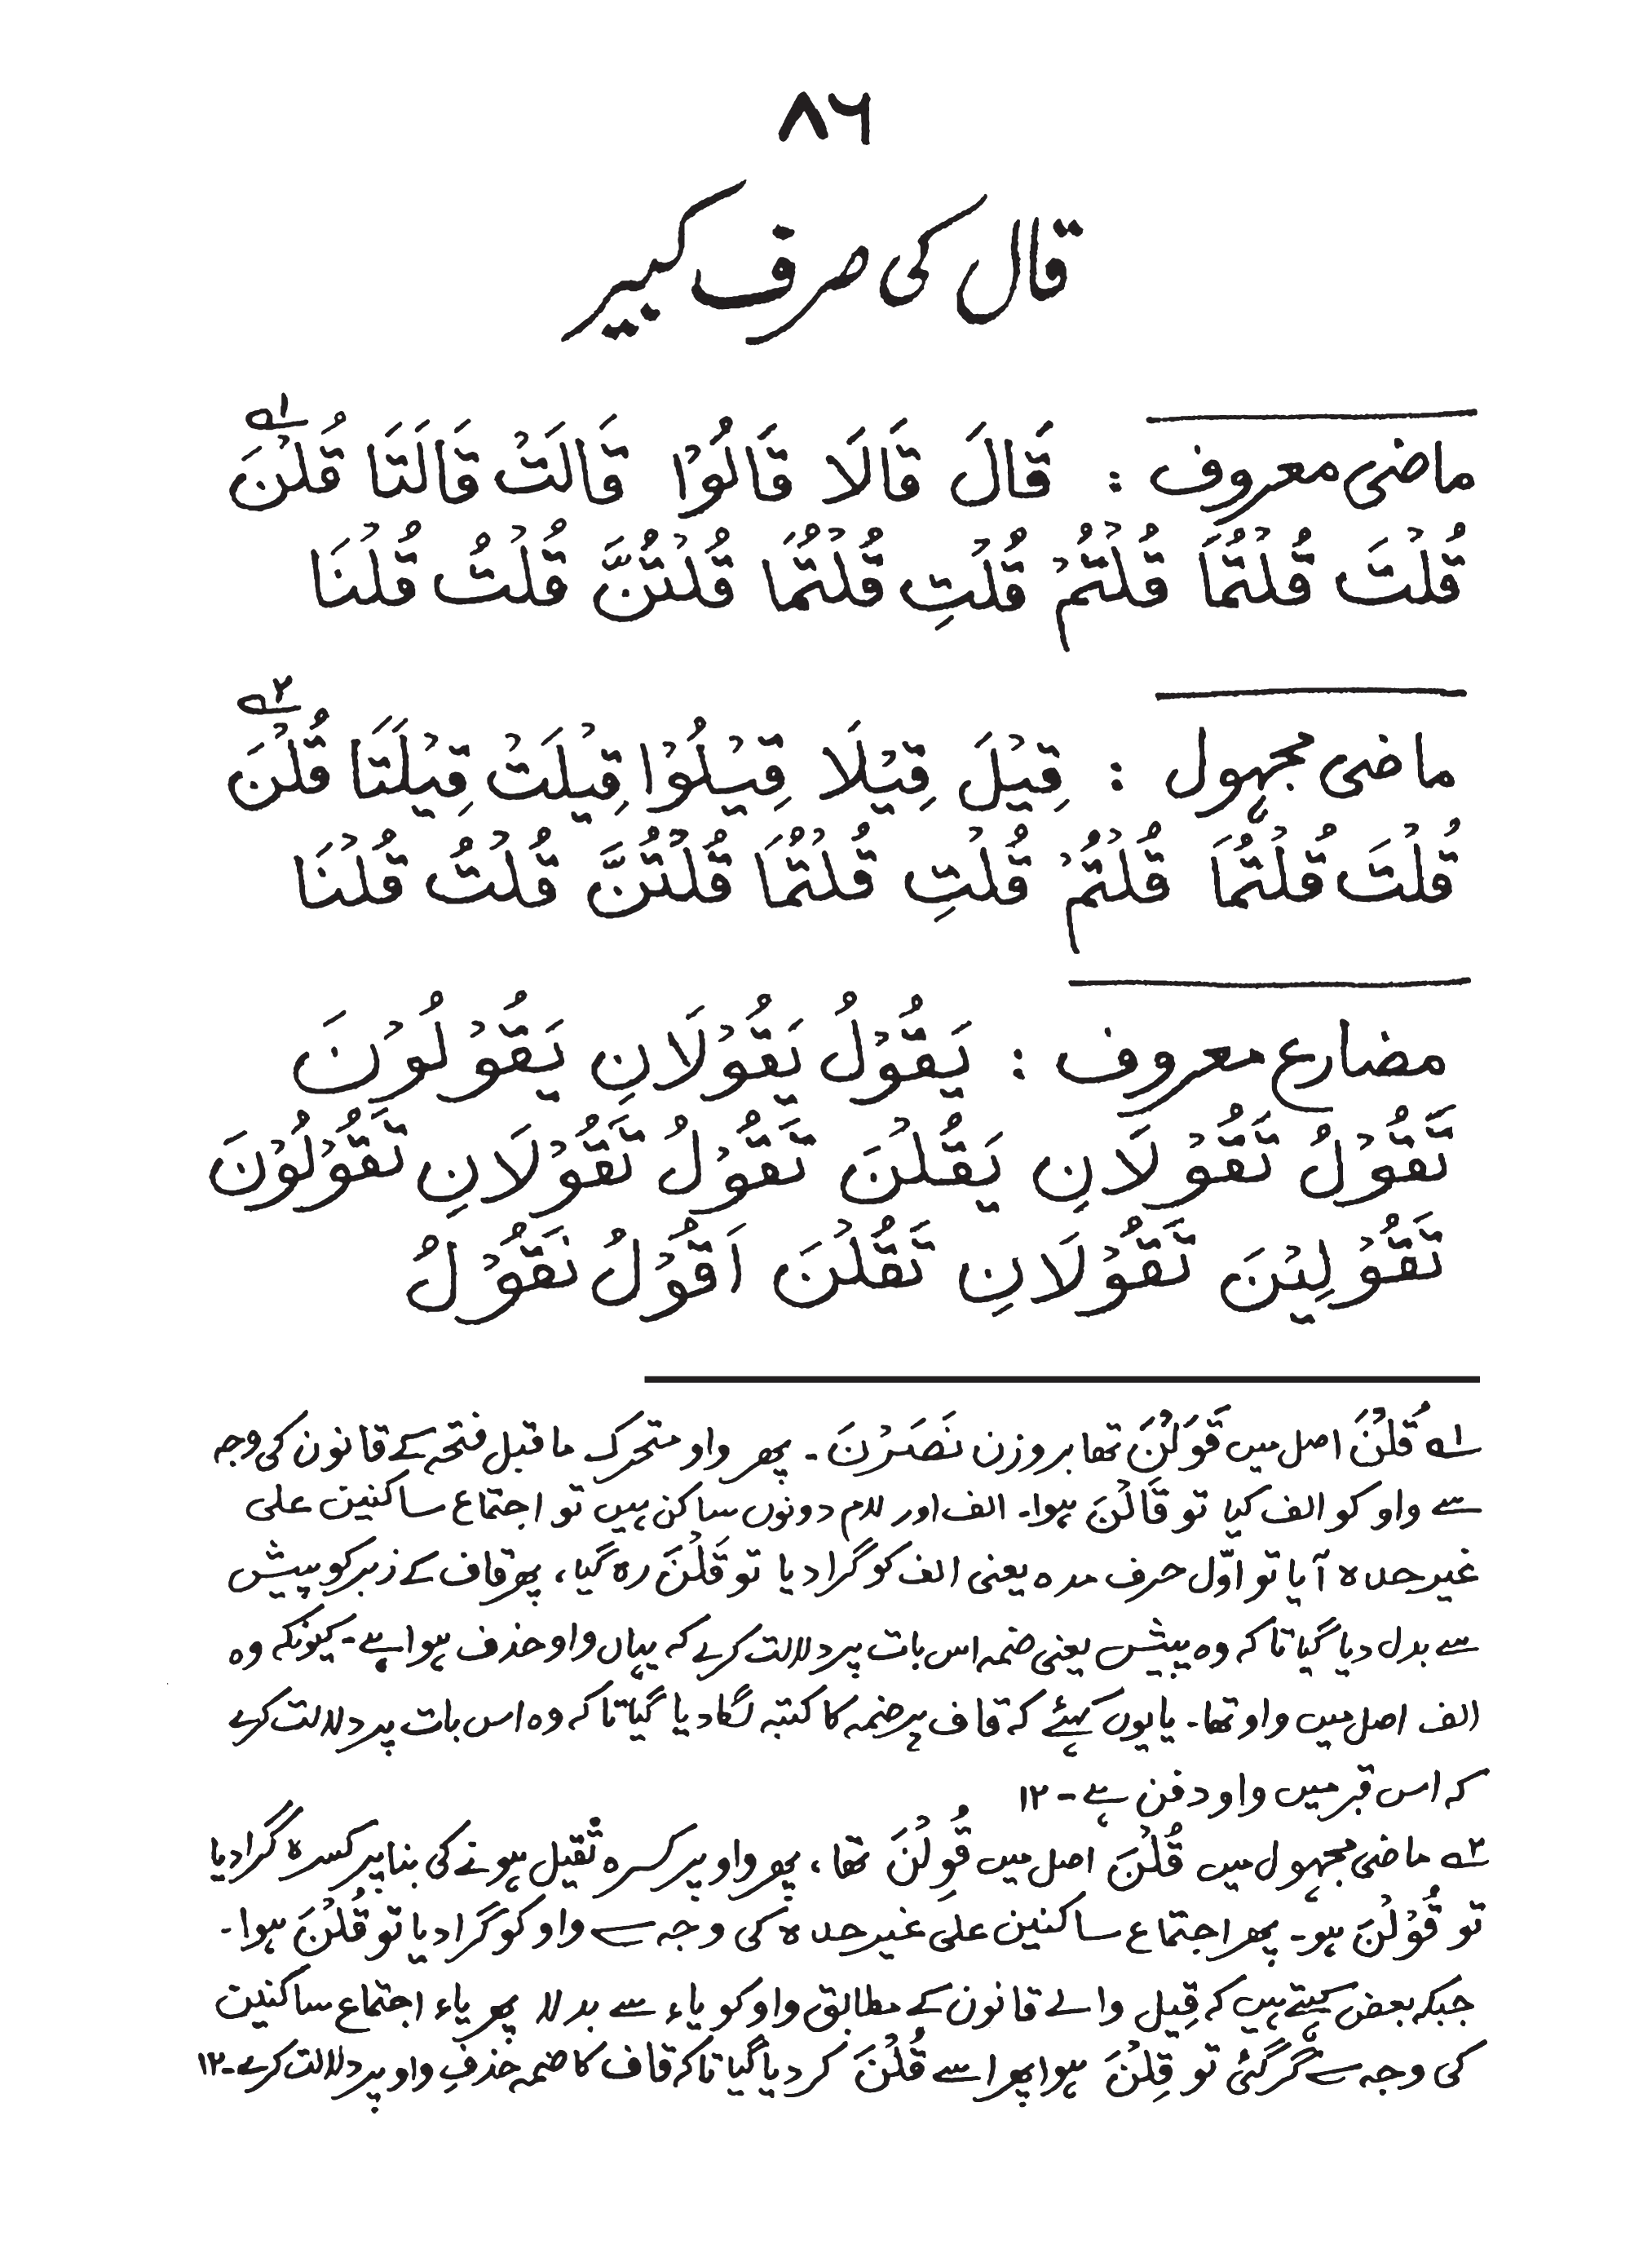 ٨٦
قال کی صرف کبیر
ماضی معروف : قَالَ قَالَا قَالُوْا قَالَتْ قَالَتَا قُلْنَ ؁۱
قُلْتَ قُلْتُمَا قُلْتُمْ قُلْتِ قُلْتُمَا قُلْتُنَّ قُلْتُ قُلْنَا
ماضی مجہول : قِيْلَ قِيْلَا قِيْلُوْا قِيْلَتْ قِيْلَتَا قُلْنَ ؁۲
قُلْتَ قُلْتُمَا قُلْتُمْ قُلْتِ قُلْتُمَا قُلْتُنَّ قُلْتُ قُلْنَا
مضارع معروف : يَقُوْلُ يَقُوْلَانِ يَقُوْلُوْنَ
تَقُوْلُ تَقُوْلَانِ يَقُلْنَ تَقُوْلُ تَقُوْلَانِ تَقُوْلُوْنَ
تَقُوْلِيْنَ تَقُوْلَانِ تَقُلْنَ اَقُوْلُ نَقُوْلُ
؁۱ قُلْنَ اصل میں قَوَلْنَ تھا بروزن نَصَرْنَ ۔ پھر واو متحرک ماقبل فتحہ کے قانون کی وجہ
سے واو کو الف کیا تو قَالْنَ ہوا۔ الف اور لام دونوں ساکن ہیں تو اجتماع ساکنین علی
غیر حدہ آیا تو اوّل حرف مدہ یعنی الف کو گرا دیا تو قَلْنَ رہ گیا، پھر قاف کے زبر کو پیش
سے بدل دیا گیا تاکہ وہ پیش یعنی ضمہ اس بات پر دلالت کرے کہ یہاں واو حذف ہوا ہے۔ کیونکہ وہ
الف اصل میں واو تھا۔ یا یوں کہئے کہ قاف پر ضمہ کا کتبہ لگا دیا گیا تاکہ وہ اس بات پر دلالت کرے
کہ اس قبر میں واو دفن ہے۔ ۱۲
؁۲ ماضی مجہول میں قُلْنَ اصل میں قُوِلْنَ تھا، پھر واو پر کسرہ ثقیل ہونے کی بنا پر کسرہ گرا دیا
تو قُوْلْنَ ہو۔ پھر اجتماع ساکنین علی غیر حدہ کی وجہ سے واو کو گرا دیا تو قُلْنَ ہوا۔
جبکہ بعض کہتے ہیں کہ قِیل والے قانون کے مطابق واو کو یاء سے بدلا پھر یاء اجتماع ساکنین
کی وجہ سے گر گئی تو قِلْنَ ہوا پھر اسے قُلْنَ کر دیا گیا تاکہ قاف کا ضمہ حذفِ واو پر دلالت کرے۔۱۲